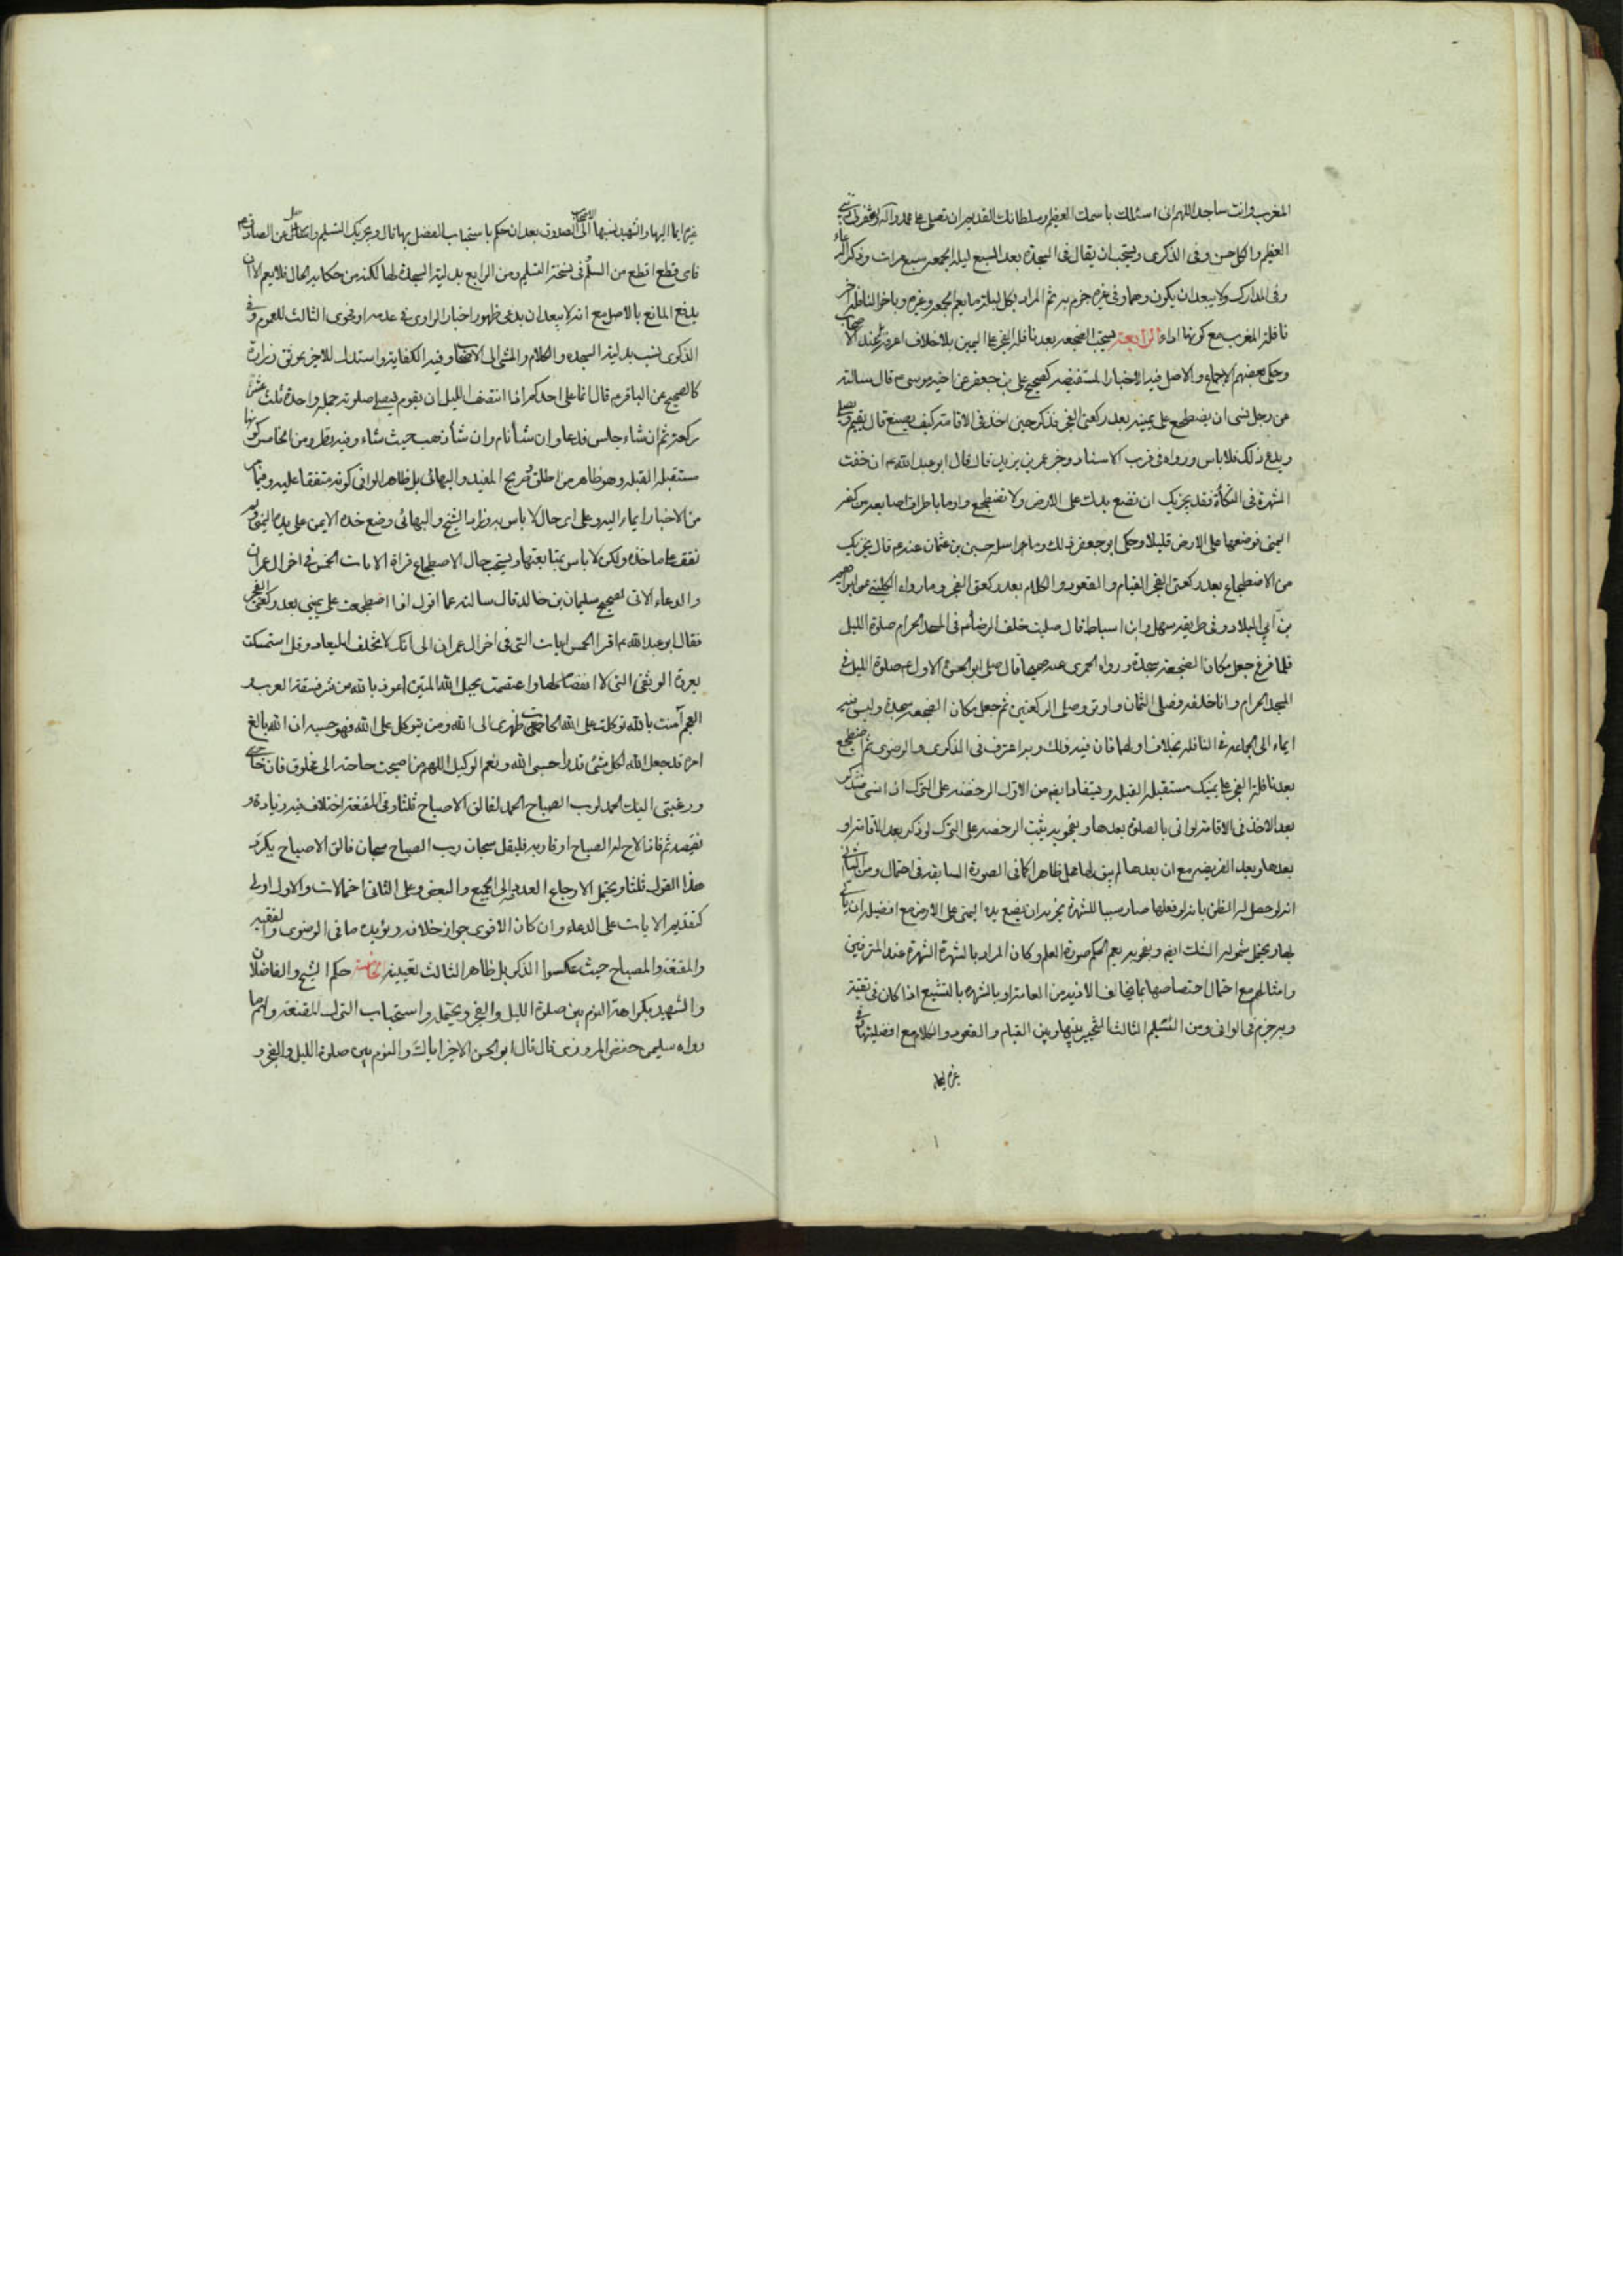 المغرب وانت ساجد اللهم انى اسئلك باسمك العظيم وسلطانك القديم ان تصلى على محمد وآله وتغفر لى ذنبى
العظيم والكل حسن وفى الذكرى ويستحب ان يقال فى السجدة بعد السبع ليلة الجمعة سبع مرات وذكر الدعاء
وفى المدارك ولا يبعد ان يكون وهما وفى غيره جزم به ثم المراد بكل ليلة ما يعم الجمعة وغيره وباخر النافلة اخر
نافلة المغرب مع كونها اداء الرابعة يستحب الضجعة بعد نافلة الفجر على اليمين بلا خلاف اعرفه عند الاصحاب
وحكى بعضهم الاجماع والاصل فيه الاخبار المستفيضة كصحيح على بن جعفر عن اخيه موسى م قال سالته
عن رجل نسى ان يضطجع على يمينه بعد ركعتى الفجر فذكر حين اخذ فى الاقامة كيف يصنع قال يقيم ويصلى
ويدع ذلك فلا باس ورواه فى قرب الاسناد وخبر عمر بن يزيد قال قال ابو عبد الله م ان خفت
الشهرة فى التكأة فقد يجزيك ان تضع يدك على الارض ولا تضطجع واومأ باطراف اصابعه من كفه
اليمنى فوضعها على الارض قليلا وحكى ابو جعفر ذلك ومراسله حسين بن عثمان عنه م قال يجزيك
من الاضطجاع بعد ركعتى الفجر القيام والقعود والكلام بعد ركعتى الفجر وما رواه الكلينى عن ابراهيم
بن أبى البلاد وفى طريقه سهل وابن اسباط قال صليت خلف الرضا م فى المسجد الحرام صلوة الليل
فلما فرغ جعل مكان الضجعة سجدة ورواه الحميرى عنه صحيحا قال صلى ابو الحسن الاول م صلوة الليل فى
المسجد الحرام وانا خلفه فصلى الثمان واوتر وصلى الركعتين ثم جعل مكان الضجعة سجدة وليس فيه
ايماء الى الجماعة فى النافلة بخلاف اولهما فان فيه ذلك وبه اعترف فى الذكرى والرضوى ثم اضطجع
بعد نافلة الفجر على يمينك مستقبل القبلة ويستفاد ايضا من الاول الرخصة على الترك اذا نسى فتذكر
بعد الاخذ فى الاقامة اتى بالصلوة بعدها وبفحويه يثبت الرخصة على الترك لو ذكر بعد الاقامة او
بعدها وبعد الفريضة مع ان بعدها لم يبق لها محل ظاهرا كما فى الصورة السابقة فى احتمال ومن الثانى
انه لو حصل له الظن بانه لو فعلها صار سببا للشهرة يجزيه ان يضع يده اليمنى على الارض مع افضلية ان ياتى
بها ويحتمل شموله الشك ايضا وبفحويه يعم الحكم صورة العلم وكان المراد بالشهرة الشهرة عند المترفين
وامثالهم مع احتمال اختصاصها بما يخالف الافيد من العامة او بالشهرة بالتشيع اذا كان فى تقية
وبه جزم فى الوافى ومن التسليم الثالث التخيير بينها وبين القيام والقعود والكلام مع افضليتها فى
غيرها ايماء اليها والشهيد نسبها الى الصدوق بعد ان حكم باستحباب الفضل بها قال ويجزيك التسليم عن الصادق م
فاى قطع اقطع من السلم فى نسخة التسليم ومن الرابع بدلية السجدة لها لكنه من حكاية الحال فلا يعم الا ان
يدفع المانع بالاصل مع انه لا يبعد ان يدعى ظهور اخبار الراوى فى عدمه او فحوى الثالث للعموم وفى
الذكرى نسب بدلية السجدة والكلام والمشى الى الاصحاب وفيه الكفاية واستدل للاخير بموثق زرارة
كالصحيح عن الباقر م قال انما على احدكم اذا انتصف الليل ان يقوم فيصلى صلوته جملة واحدة ثلث عشرة
ركعة ثم ان شاء جلس فدعا وان شاء نام وان شاء ذهب حيث شاء وفيه نظر ومن الخامس كونها
مستقبل القبلة وهو ظاهر من اطلق وصريح المفيد والبهائى بل ظاهر الوافى كونه متفقا عليه وفيما
من الاخبار ايماء اليه وعلى اى حال لا باس به وزاد الشيخ والبهائى وضع خده الايمن على يده اليمنى ولم
نقف على ماخذه ولكن لا باس بمتابعتها ويستحب حال الاضطجاع قراءة الايات الخمس فى اخر ال عمران
والدعاء الاتى لصحيح سليمان بن خالد قال سالته عما اقول اذا اضطجعت على يمينى بعد ركعتى الفجر
فقال ابو عبد الله م اقرا الخمس ايات التى فى اخر ال عمران الى انك لا تخلف الميعاد وقل استمسكت
بعروة الوثقى التى لا انفصام لها واعتصمت بحبل الله المتين اعوذ بالله من شر فسقة العرب و
العجم آمنت بالله توكلت على الله الجأت ظهرى الى الله ومن يتوكل على الله فهو حسبه ان الله بالغ
امره قد جعل الله لكل شئ قدرا حسبى الله ونعم الوكيل اللهم من اصبحت حاجته الى مخلوق فان حاجتى
ورغبتى اليك الحمد لرب الصباح الحمد لفالق الاصباح ثلثا وفى المقنعة اختلاف فيه زيادة و
نقيصة ثم فاذا لاح له الصباح او قاربه فليقل سبحان رب الصباح سبحان فالق الاصباح يكرر
هذا القول ثلثا ويحتمل الارجاع العددى الى الجميع والبعض وعلى الثانى احتمالات والاول اولى
كتقديم الايات على الدعاء وان كان الاقوى جواز خلافه ويؤيده ما فى الرضوى والفقيه
والمقنعة والمصباح حيث عكسوا الذكر بل ظاهر الثالث تعيينه الخامسة حكم الشيخ والفاضلان
والشهيد بكراهة النوم بين صلوة الليل والفجر ويحتمله واستحباب الترك للمقنعة ولهم ما
رواه سليمن حفص المروزى قال قال ابو الحسن الاخير اياك والنوم بين صلوة الليل والفجر و